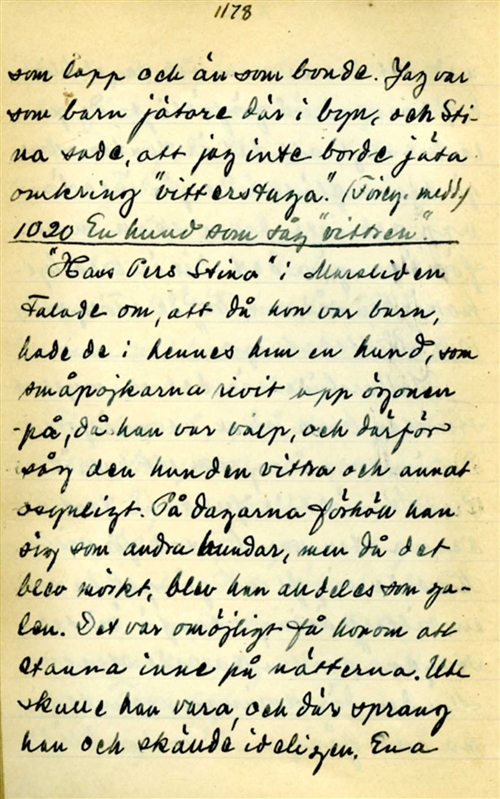 1178
som lapp och än som bonde. Jag var
som barn jätare där i byn, och Sti-
na sade, att jag inte borde jäta
omkring "vitterstuga". (Föreg. medd.)
1020 En hund som såg "vittren".
"Hans Pers Stina" i Marsliden
talade om, att då hon var barn,
hade de i hennes hem en hund, som
småpojkarna rivit upp ögonen
på, då han var valp, och därför
såg den hunden vittra och annat
osynligt. På dagarna förhöll han
sig som andra hundar, men då det
blev mörkt, blev han alldeles som ga-
len. Det var omöjligt få honom att
stanna inne på nätterna. Ute
skulle han vara, och där sprang
han och skällde ideligen. En a